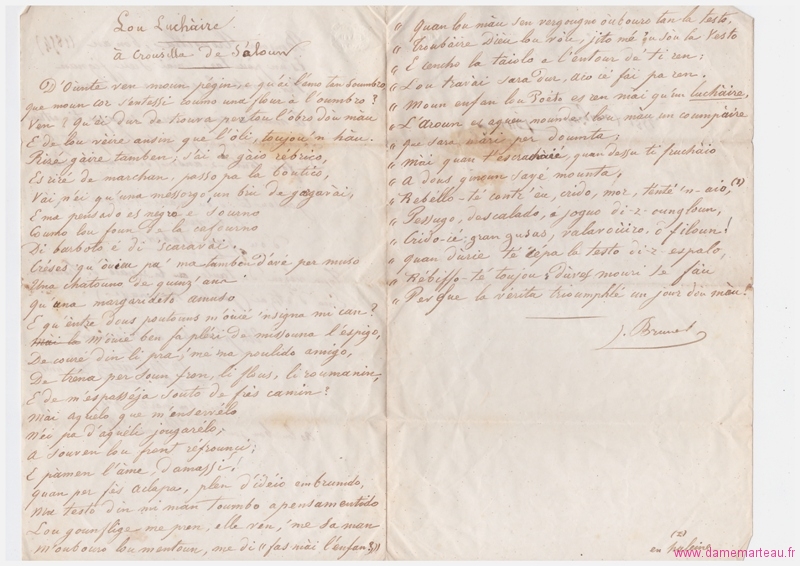 Lou Luchàire
à Crousilla de Sáloun
D'ounte ven moun pégin, e qu'ài l'âmo tan
que moun cor s'entessi coumo una flour à l'oumbro?
Ven ? Qu'ei dur de trouva per lou l'obro dóu màu
E de lou vèire ansin que l'òli, toujou'n hàu.
Riré gàire tamben; s'ài de gàio rébrico,
Es riré de marchan, passo pa la boutico;
Vài, n'ei qu'una messorgo, un briu de gazavài,
E ma pensado es negro e sourno
Coumo lou foun de la cafourno
Di barboto è di scaravài.
Créses qu'àuiou pa' ma tambou d'avé per muso
Una chatouno de quinz'an
Qu'una margarideto amuso
E qu'entre dous poutouns m'òuié 'nsigna mi can?
M'òuié ben fa plési de missouna l'espigo,
De couré din li pra, 'mé ma poulido amigo,
De tréna per soun fron, li flous, li roumanin,
E de m'espasséja souto de frès camin?
Mài aquelo que m'enservélo
N'éi pa d'aquéli jougarélo;
A souven lou front réfrounçi;
E pàmen l'âme, damassi!
Quan per fès aclapa, plen d'idéio embrunido,
Ma testo din mi man toumbo apensamentido
Lou gounflige me pren, elle ven, 'me sa man
M'oubouro lou mentoun, me di "fas mài l'enfan?"
" Quan lou màu sen vergougno oubouro tan la testo,
" Troubàire Dieu lou vòu, jito mé qu'sòn la Vesto
" E cencho la tàiolo a l'entour de ti ren;
" Lou travài sara dur, aco ié fai pa ren.
" Moun enfan lou Pòeto es ren mài qu'un luchàire,
" L'Aroun es aqueu mounde! lou màu un coumpàire
" que sara màri per dounta;
" Mài quan t'escrachàié, quan dessu ti
" A dous ginoun sayé mounta,
" Rebello-té contr'èu, crido, mor, tenté 'n-aio, (2)
" Pessugo, descalado, e jogue di-z-oungloun,
" Crido-ié: gran gusas, valavòuiro, ô filoun!
" Quan dùrié té la testo di-z-espalo,
" Rébisso-té toujou
" Per que la vérita trioumphlé un jour dóu màu."
J. Brunet
(2)
en
www.damemarteau.fr